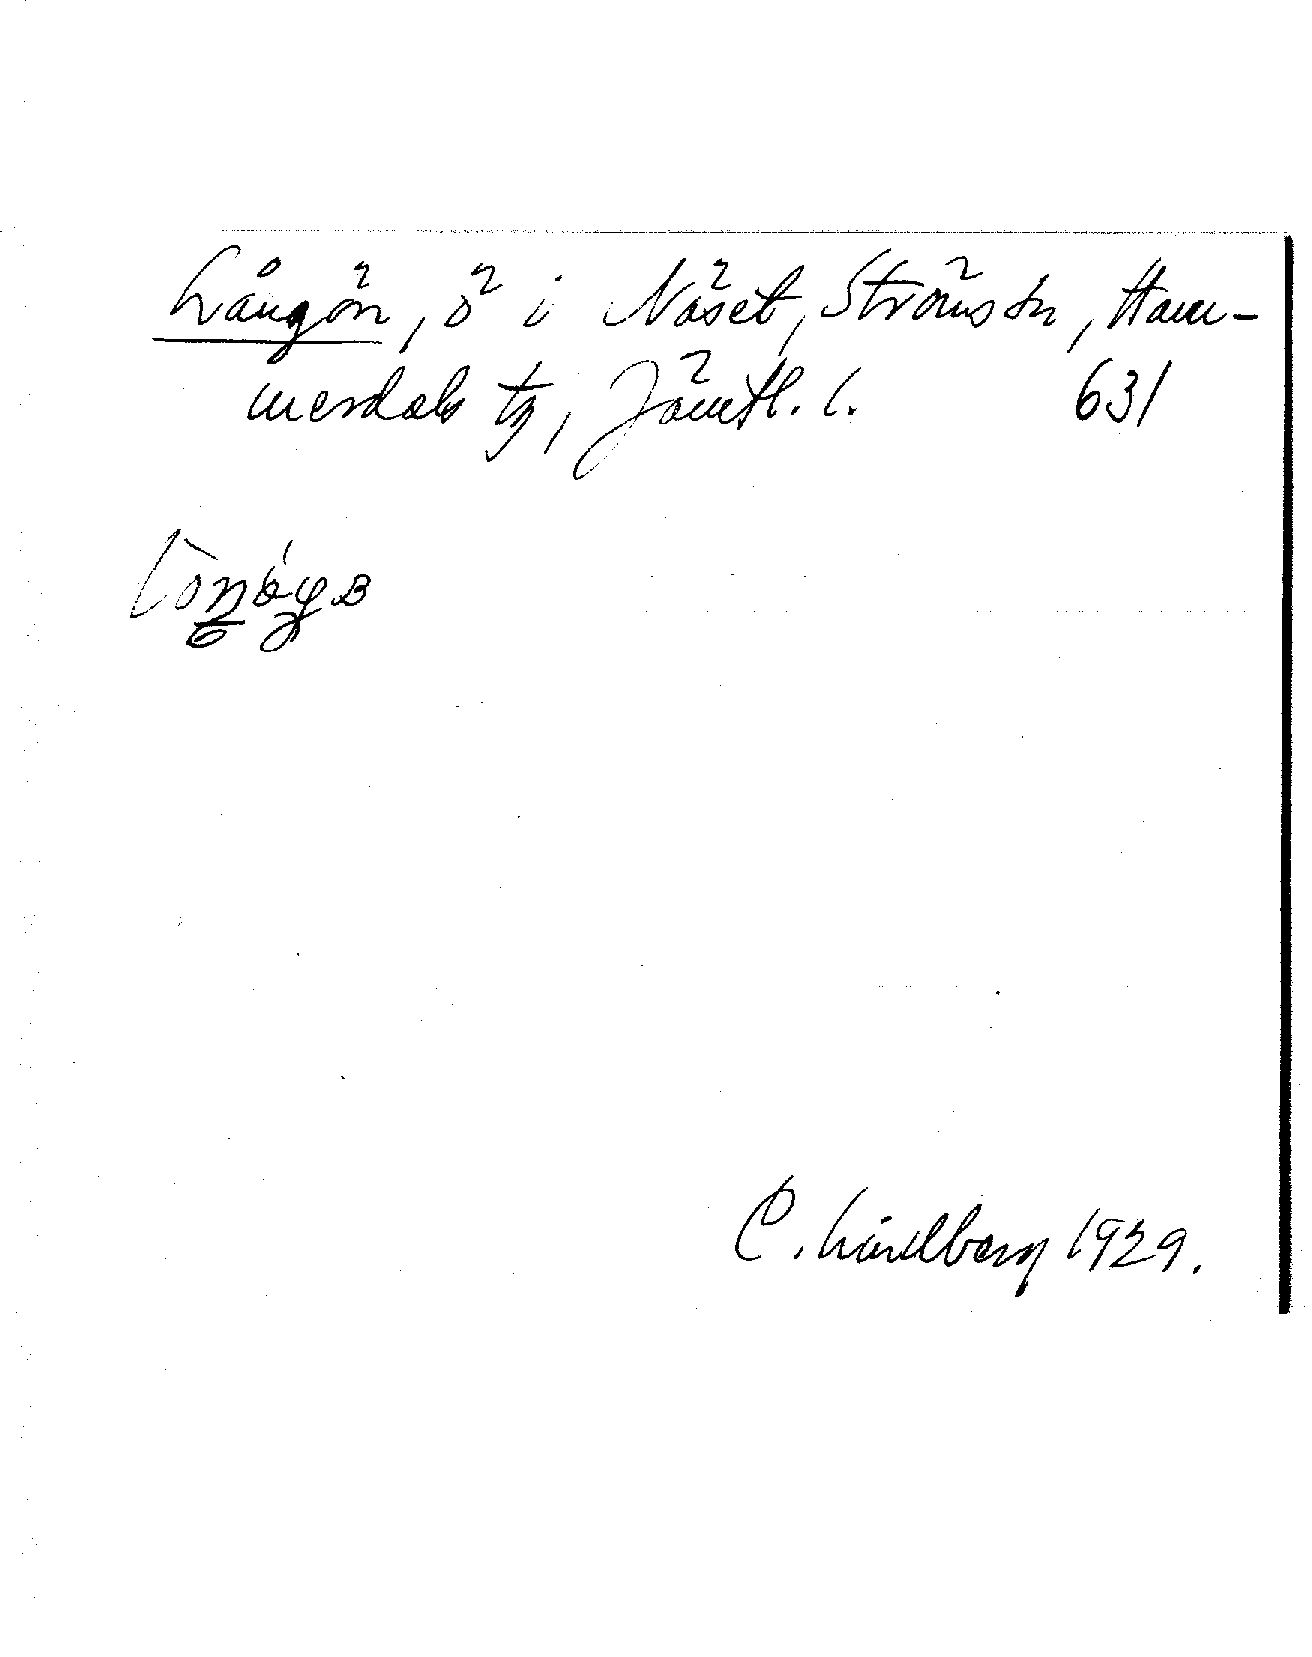 Långön, ö i Näset, Ströms sn, Ham-
merdals tg, Jämtl. l. 631
C. Lindberg 1929.